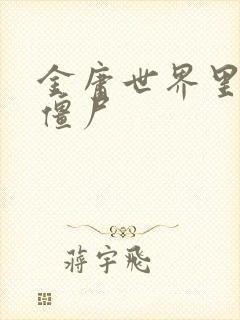 金庸世界里
僵尸
蒋宇飞